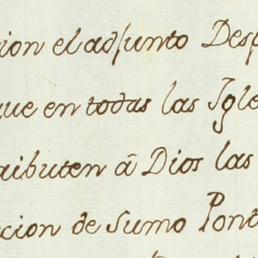 cion el adjunto Desp
que en todas las Igle
ributen â Dios las
cion de Sumo Pont